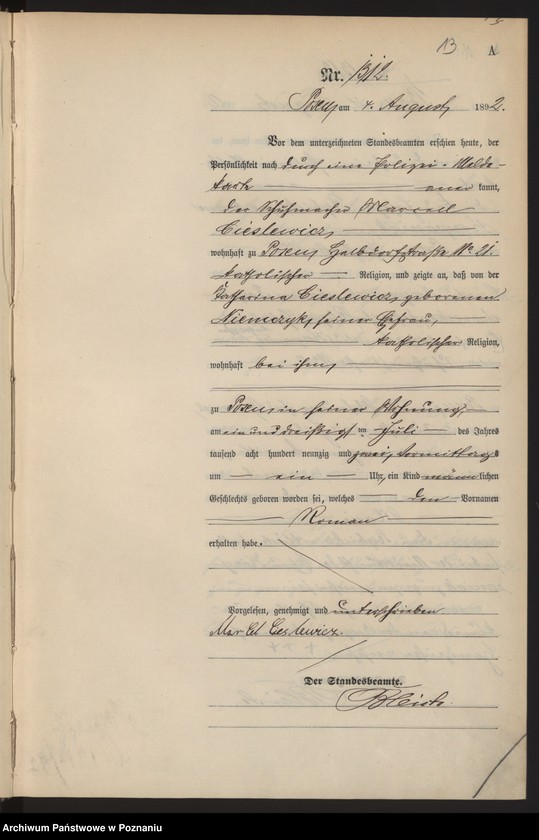 13
A
Nr. 1312.
Posen, am 4. August 1892.
Vor dem unterzeichneten Standesbeamten erschien heute, der
Persönlichkeit nach durch eine Polizei-Melde-
karte anerkannt,
der Schuhmacher Marcell
Cieslewicz,
wohnhaft zu Posen, Halbdorfstraße No 21.
katholischer Religion, und zeigte an, daß von der
Katharina Cieslewicz, geborenen
Niemczyk, seiner Ehefrau,
katholischer Religion,
wohnhaft bei ihm,
zu Posen, in seiner Wohnung,
am einunddreißigsten Juli des Jahres
tausend acht hundert neunzig und zwei, Vormittags
um ein Uhr, ein Kind männlichen
Geschlechts geboren worden sei, welches den Vornamen
Roman
erhalten habe.
Vorgelesen, genehmigt und unterschrieben
Marcel Cieslewicz.
Der Standesbeamte.
Archiwum Państwowe w Poznaniu